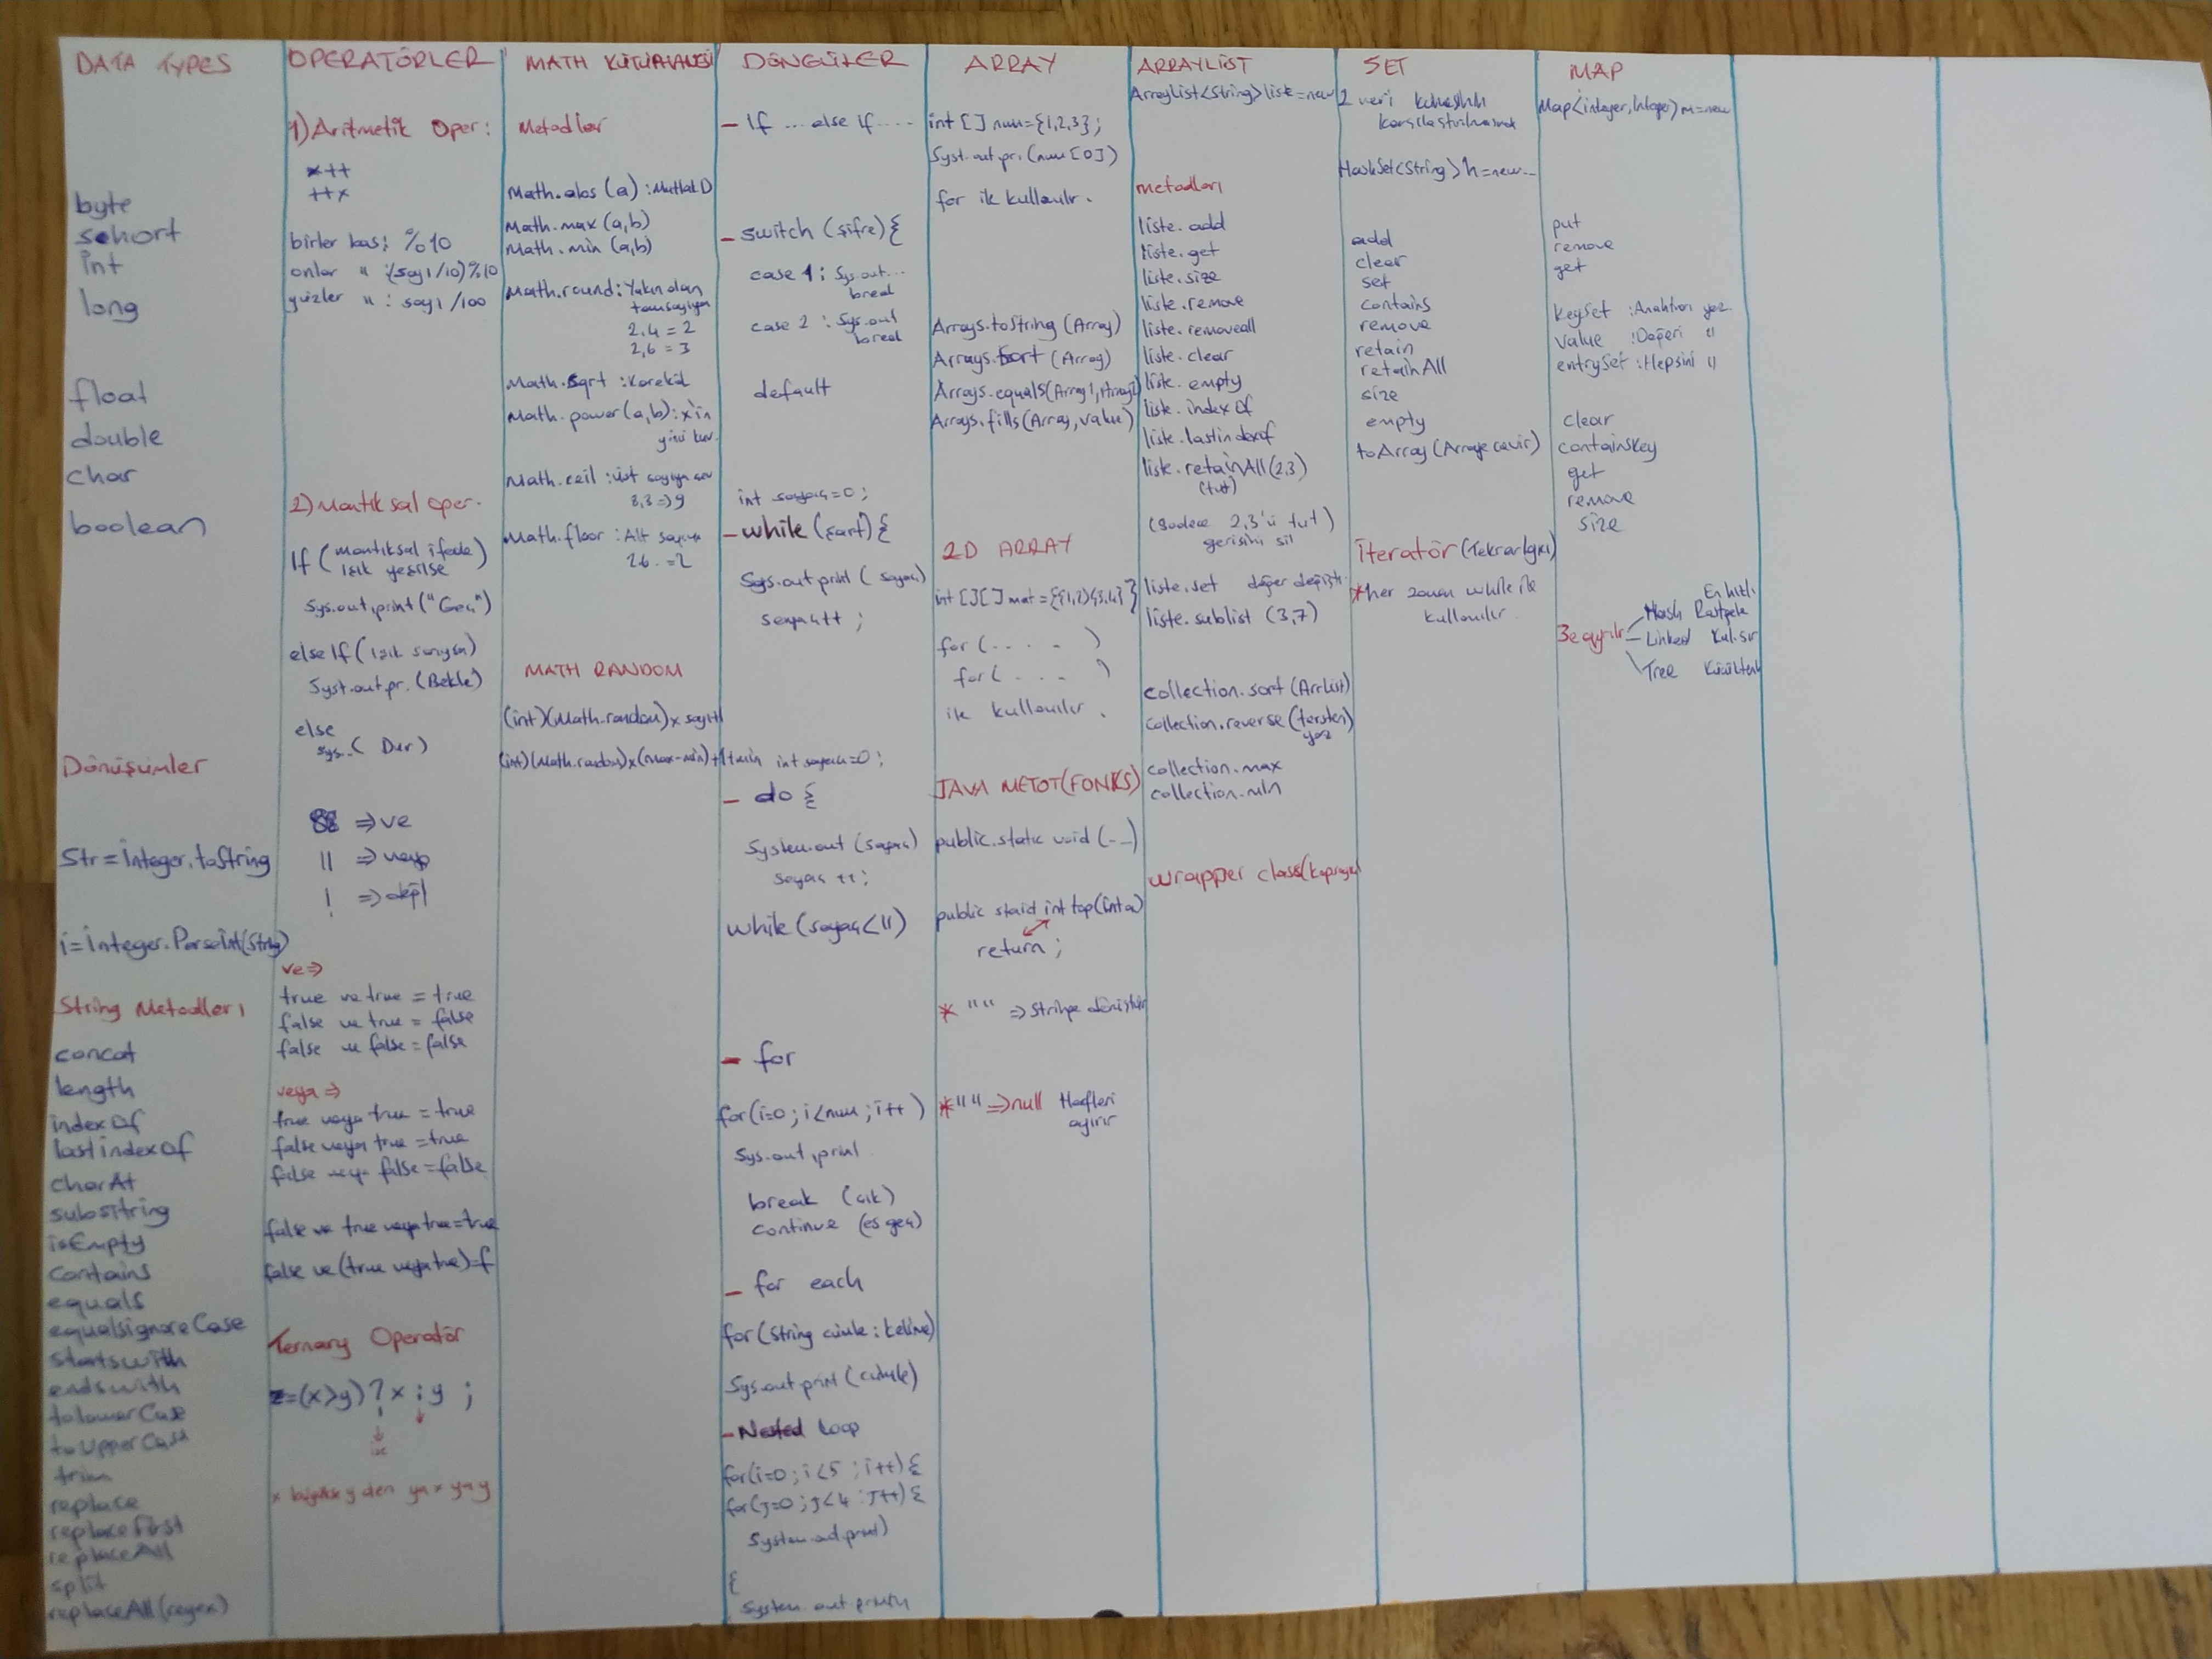 DATA TYPES
byte
sehort
int
long
float
double
char
boolean
Dönüşümler
Str = integer.toString
i = integer.ParseInt(String)
String Metodları
concat
length
indexOf
lastindexOf
charAt
subsitring
isEmpty
contains
equals
equalsignoreCase
startswith
endswith
tolowerCase
toUpperCase
trim
replace
replacefirst
replaceAll
split
replaceAll(regex)
OPERATÖRLER
1) Aritmetik Oper:
x++
++x
birler bas: %10
onlar " :(sayı/10)%10
yüzler " : sayı/100
2) Mantıksal oper.
If (mantıksal ifade)
ışık yeşilse
Sys.out.print("Geç")
else If (ışık sarıysa)
Syst.out.pr. (Bekle)
else
sys..( Dur)
&& => ve
|| => veya
! => değil
ve =>
true ve true = true
false ve true = false
false ve false = false
veya =>
true veya true = true
false veya true = true
false veya false = false
false ve true veya true = true
false ve (true veya true) = f
Ternary Operatör
z=(x>y) ? x : y ;
x büyükse y den ya x ya y
MATH KÜTÜPHANESİ
Metodlar
Math.abs (a) : Mutlak D
Math.max (a,b)
Math.min (a,b)
Math.round : Yakın olan
tamsayıya
2,4 = 2
2,6 = 3
Math.sqrt : Karekök
Math.power (a,b) : x'in
y'ini kuv.
Math.ceil : üst sayıya
8,3 => 9
Math.floor : Alt sayıya
2.6. = 2
MATH RANDOM
(int)(Math.random) x sayı+1
(int)(Math.random) x (max-min)+1+min
DÖNGÜLER
- If ... else If ....
- switch (şifre) {
case 1 : Sys.out...
break
case 2 : Sys.out
break
default
int sayaç=0 ;
- while (şart) {
Sys.out.print ( sayaç)
sayaç++ ;
int sayaç=0 ;
- do {
System.out (sayaç)
sayaç ++ ;
while (sayaç<11)
- for
for(i=0 ; i<num ; i++ )
Sys.out.print
break (çık)
continue (es geç)
- for each
for(String cümle : kelime)
Sys.out.print (cümle)
- Nested loop
for(i=0 ; i<5 ; i++) {
for(j=0 ; j<4 : J++) {
System.out.print)
{
System.out.println
ARRAY
int [ ] num={1,2,3} ;
Syst.out.pr. (num [0])
for ile kullanılır.
Arrays.toString (Array)
Arrays.sort (Array)
Arrays.equals(Array1,Array2)
Arrays.fills(Array, value)
2D ARRAY
int [ ][ ] mat = {{1,2}{3,4} }
for (. . . . )
for ( . . . . )
ile kullanılır .
JAVA METOT(FONKS)
public.static void (- -)
public staid int top(int a)
return ;
* " " => Stringe dönüştür
* " " => null Harfleri
ayırır
ARRAYLİST
ArrayList<String> liste = new
metodları
liste.add
liste.get
liste.size
liste.remove
liste.removeall
liste.clear
liste. empty
liste. indexOf
liste.lastindexof
liste.retainAll (2,3)
(tut)
(Sadece 2,3'ü tut)
gerisini sil
liste.set değer değiştir
liste.sublist (3,7)
collection.sort (ArrList)
collection.reverse (tersten)
yaz
collection.max
collection.min
wrapper class(kapsayıcı)
SET
2 veri
HashSet<String> h = new...
add
clear
set
contains
remove
retain
retainAll
size
empty
toArray (Arraye çevir)
iteratör (Tekrarlayıcı)
*her zaman while ile
kullanılır
MAP
Map<integer,integer> m=new
put
remove
get
keySet : Anahtarı yaz
value : Değeri "
entrySet : Hepsini "
clear
containskey
get
remove
size
3e ayrılır
En hızlı
Hash Rastgele
Linked Kul.sır
Tree